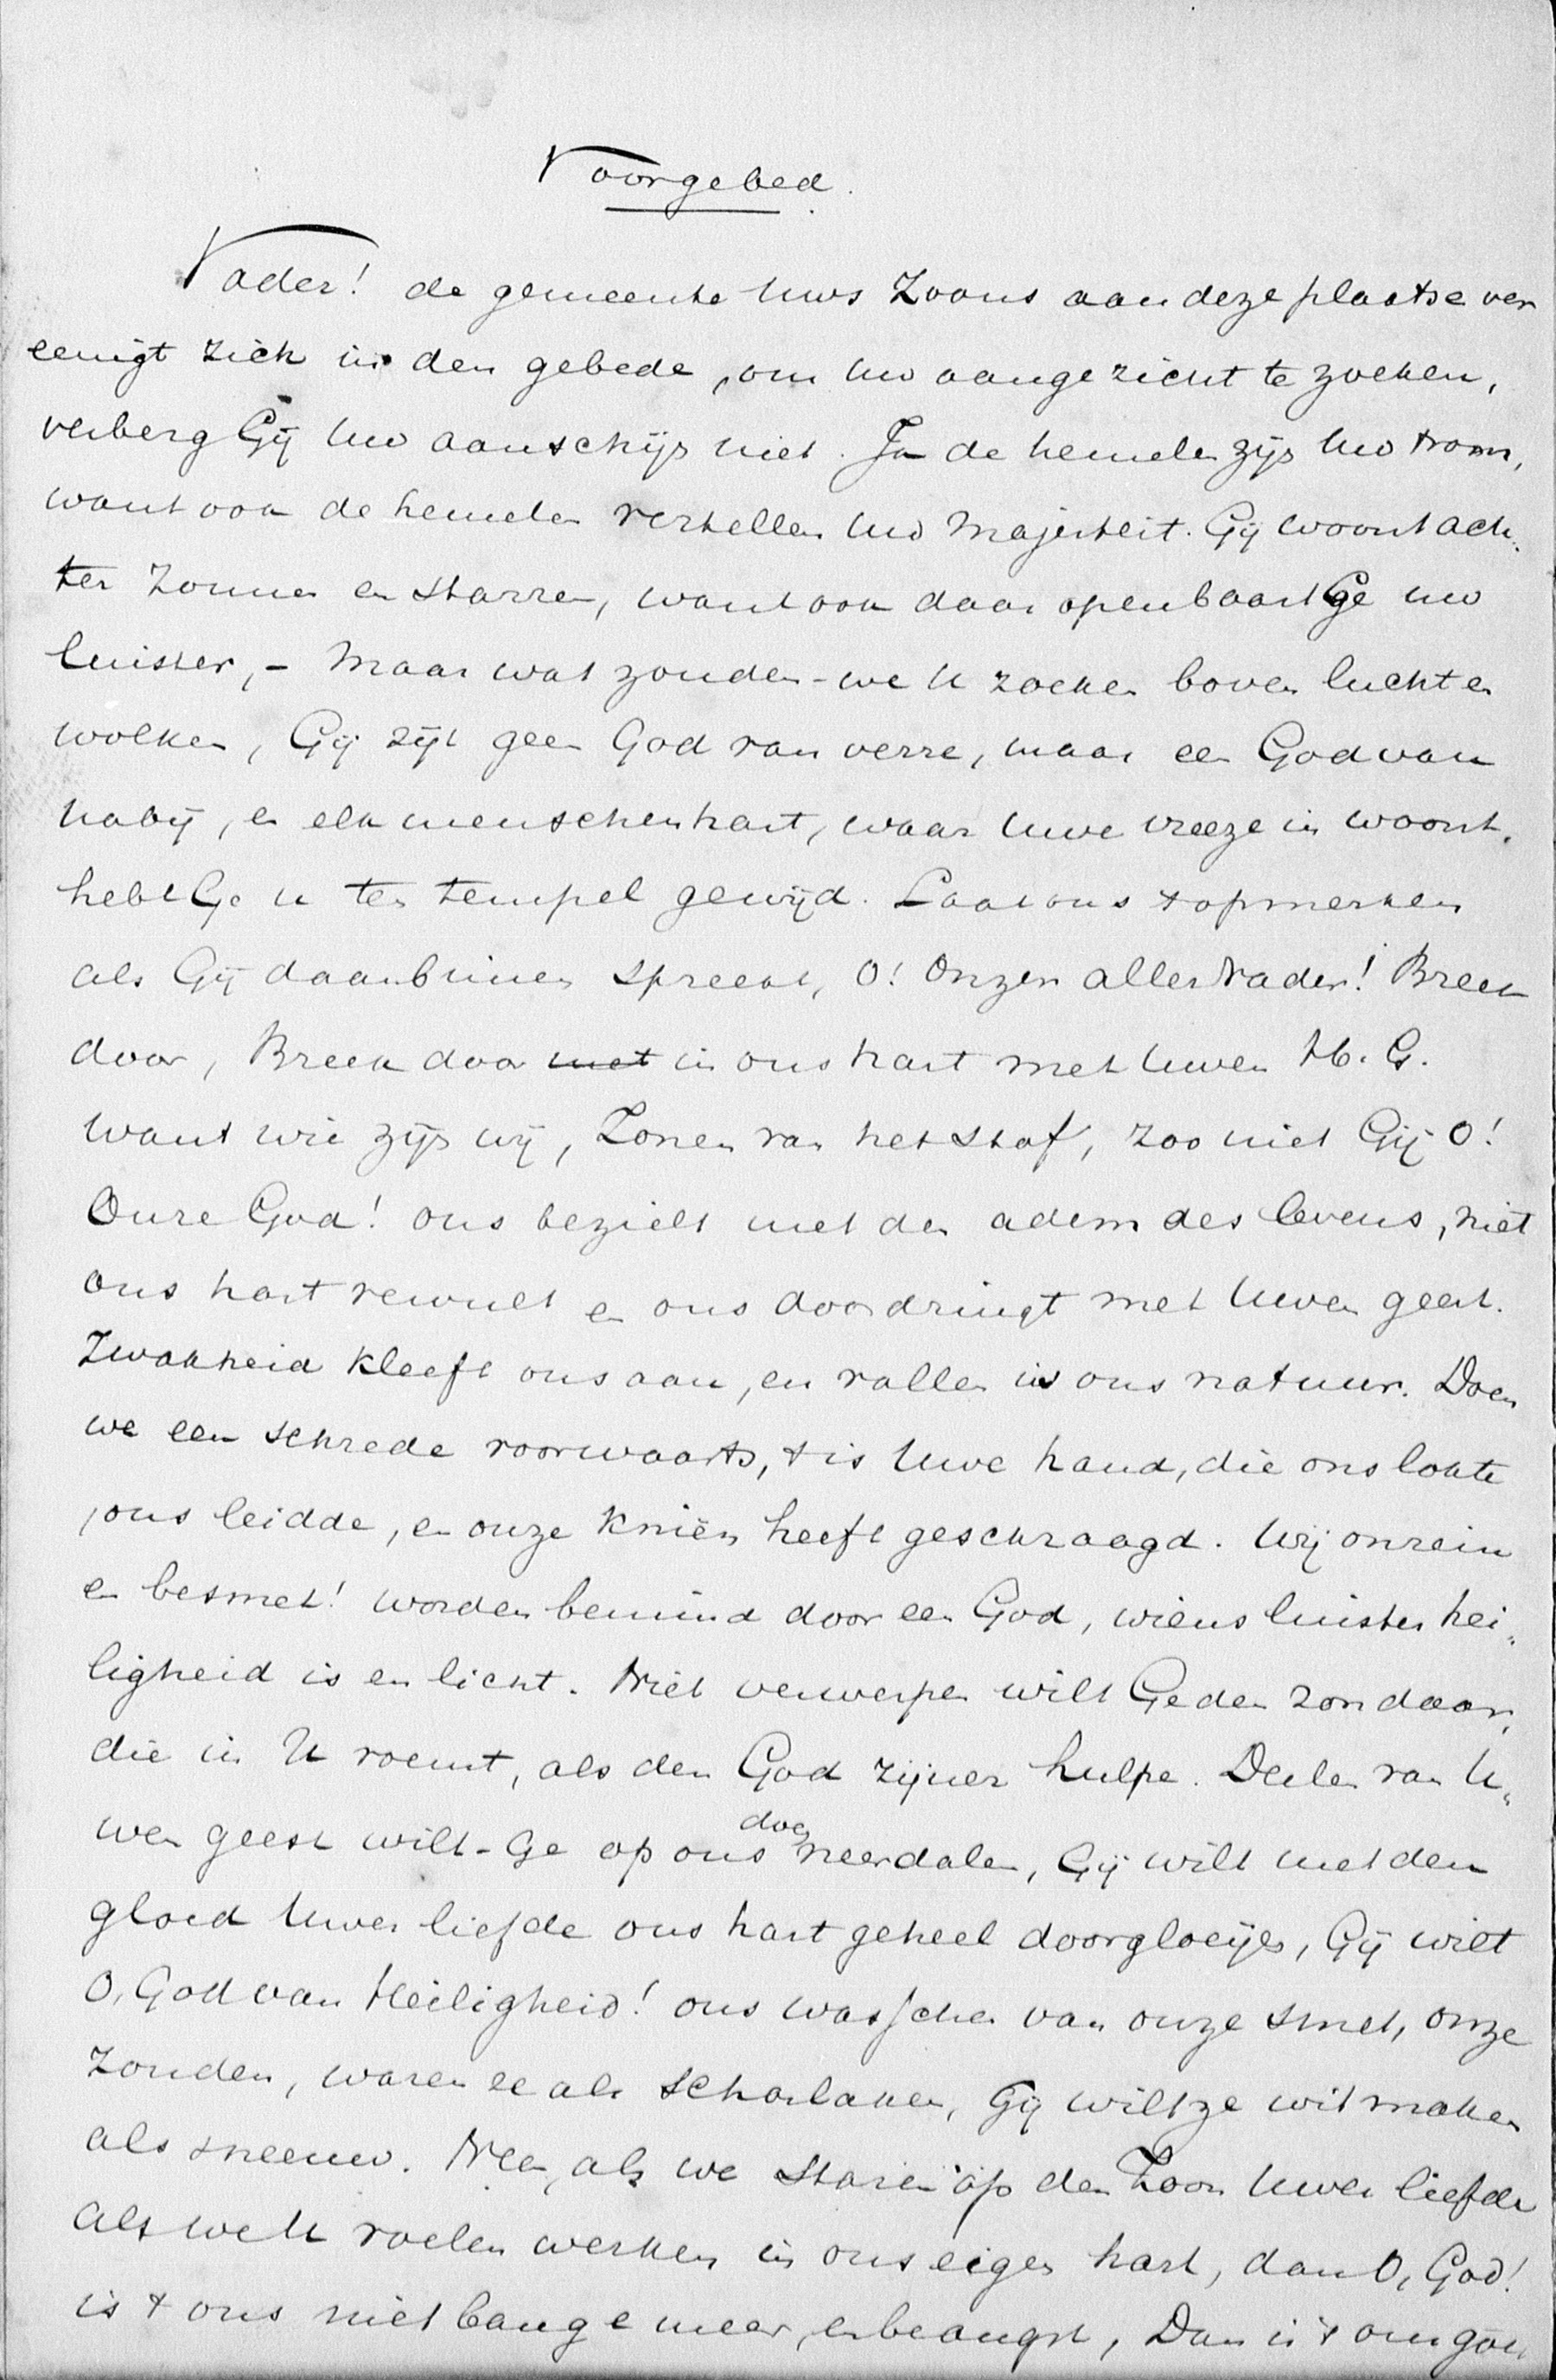 Voorgebed.
Vader! de gemeente Uws Zoons aan deze plaatse ver
eenigt zich in den gebede, om Uw aangezicht te zoeken,
verberg Gij Uw aanschijn niet. Ja de hemelen zijn Uw troon,
want ook de hemelen vertellen Uw Majesteit. Gij woont ach„
ter zonnen en starren, want ook daar openbaart Ge uw
luister, - Maar wat zouden-we U zoeken boven lucht en
wolken, Gij zijt geen God van verre, maar een God van
nabij, en elk menschenhart, waar Uwe vreeze in woont,
hebt Ge U ten tempel gewijd. Laat ons 't opmerken
als Gij daarbinnen spreekt, O! Onzer aller Vader! Breek
door, Breek door met in ons hart met Uwen H. G.
Want wie zijn wij, Zonen van het stof, zoo niet Gij O!
Onze God! ons bezielt met den adem des levens, niet
ons hart vervult en ons doordringt met Uwen geest.
Zwakheid kleeft ons aan, en vallen is ons natuur. Doen
we een schrede voorwaarts, 't is Uwe hand, die ons lokte
, ons leidde, en onze knieën heeft geschraagd. Wij onrein
en besmet! worden bemind door een God, wiens luister hei„
ligheid is en licht. Niet verwerpen wilt Ge den zondaar,
die in U roemt, als den God zijner hulpe. Deelen van U„
wen geest wilt-Ge op ons doen neerdalen, Gij wilt met den
gloed Uwer liefde ons hart geheel doorgloeijen, Gij wilt
O, God van Heiligheid! ons wasschen van onze smet, onze
zonden, waren ze als scharlaken, Gij wilt ze wit maken
als sneeuw. Neen, als we staren op den Zoon Uwer liefde
als we U voelen werken in ons eigen hart, dan O, God!
is 't ons niet bange meer, en beangst, Dan is 't